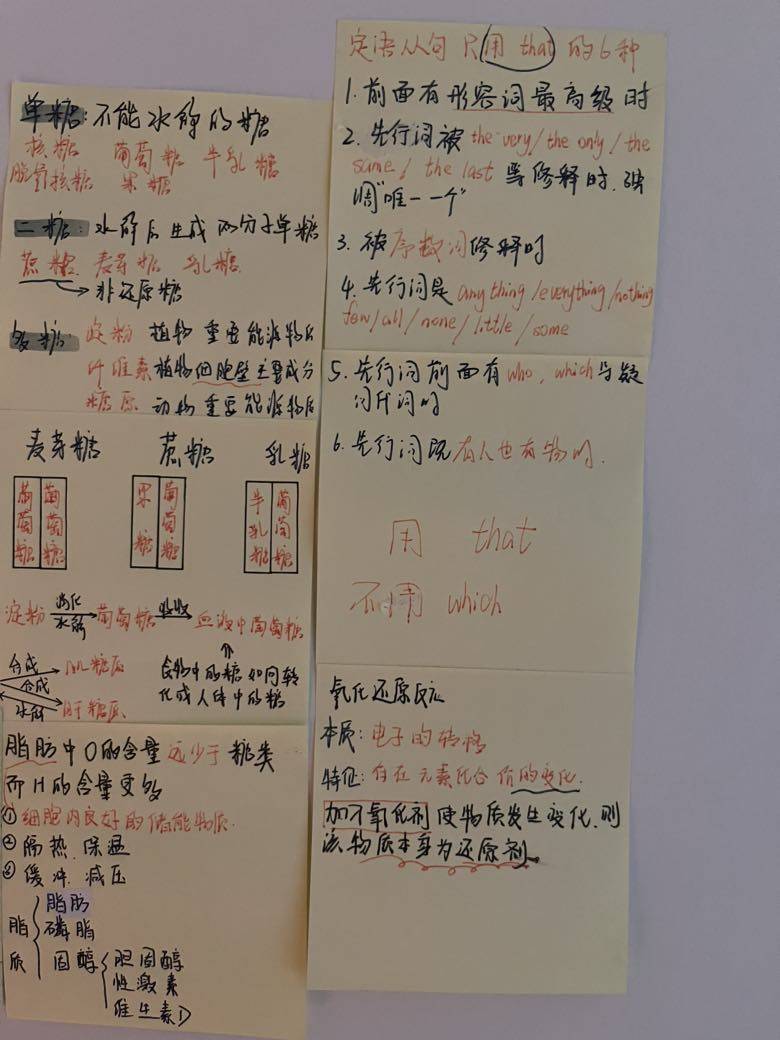 单糖：不能水解的糖
核糖 葡萄糖 半乳糖
脱氧核糖 果糖
二糖：水解后生成两分子单糖
蔗糖 麦芽糖 乳糖
非还原糖
多糖 淀粉 植物重要能源物质
纤维素 植物细胞壁主要成分
糖原 动物重要能源物质
麦芽糖 蔗糖 乳糖
葡萄糖 葡萄糖 果糖 葡萄糖 半乳糖 葡萄糖
淀粉 消化 水解 葡萄糖 吸收 血液中葡萄糖
合成 肌糖原
合成
水解 肝糖原
食物中的糖如何转
化成人体中的糖
脂肪中O的含量远少于糖类
而H的含量更多
①细胞内良好的储能物质.
②隔热.保温
③缓冲.减压
脂质
脂肪
磷脂
固醇
胆固醇
性激素
维生素D
定语从句 只用 that 的6种
1.前面有形容词最高级时
2.先行词被 the very/the only/the
same/ the last 等修释时.强
调"唯一一个"
3.被序数词修释时
4.先行词是 anything/everything/nothing
few/all/none/little/some
5.先行词前面有who, which 等疑
问代词时
6.先行词既有人也有物时.
用 that
不用 which
氧化还原反应
本质：电子的转移
特征：存在元素化合价的变化.
加入氧化剂使物质发生变化,则
该物质本身为还原剂。